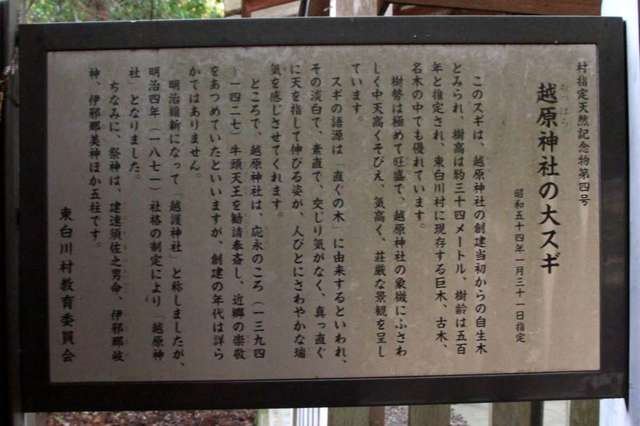 村指定天然記念物第四号
おっぱら
越原神社の大スギ
昭和五十四年一月三十一日指定
このスギは、越原神社の創建当初からの自生木
とみられ、樹高は約三十四メートル、樹齢は五百
年と指定され、東白川村に現存する巨木、古木、
名木の中でも優れています。
樹勢は極めて旺盛で、越原神社の象徴にふさわ
しく中天高くそびえ、気高く、荘厳な景観を呈し
ています。
スギの語源は「直ぐの木」に由来するといわれ、
その淡白で、素直で、交じり気がなく、真っ直ぐ
に天を指して伸びる姿が、人びとにさわやかな瑞
気を感じさせてくれます。
ところで、越原神社は、応永のころ(一三九四
〜一四二七)牛頭天王を勧請奉斎し、近郷の崇敬
をあつめていたといいますが、創建の年代は詳ら
かではありません。
明治維新になって「越護神社」と称しましたが、
明治四年(一八七一)社格の制定により「越原神
社」となりました。
ちなみに、祭神は、建速須佐之男命、伊邪那岐
神、伊邪那美神ほか五柱です。
東白川村教育委員会